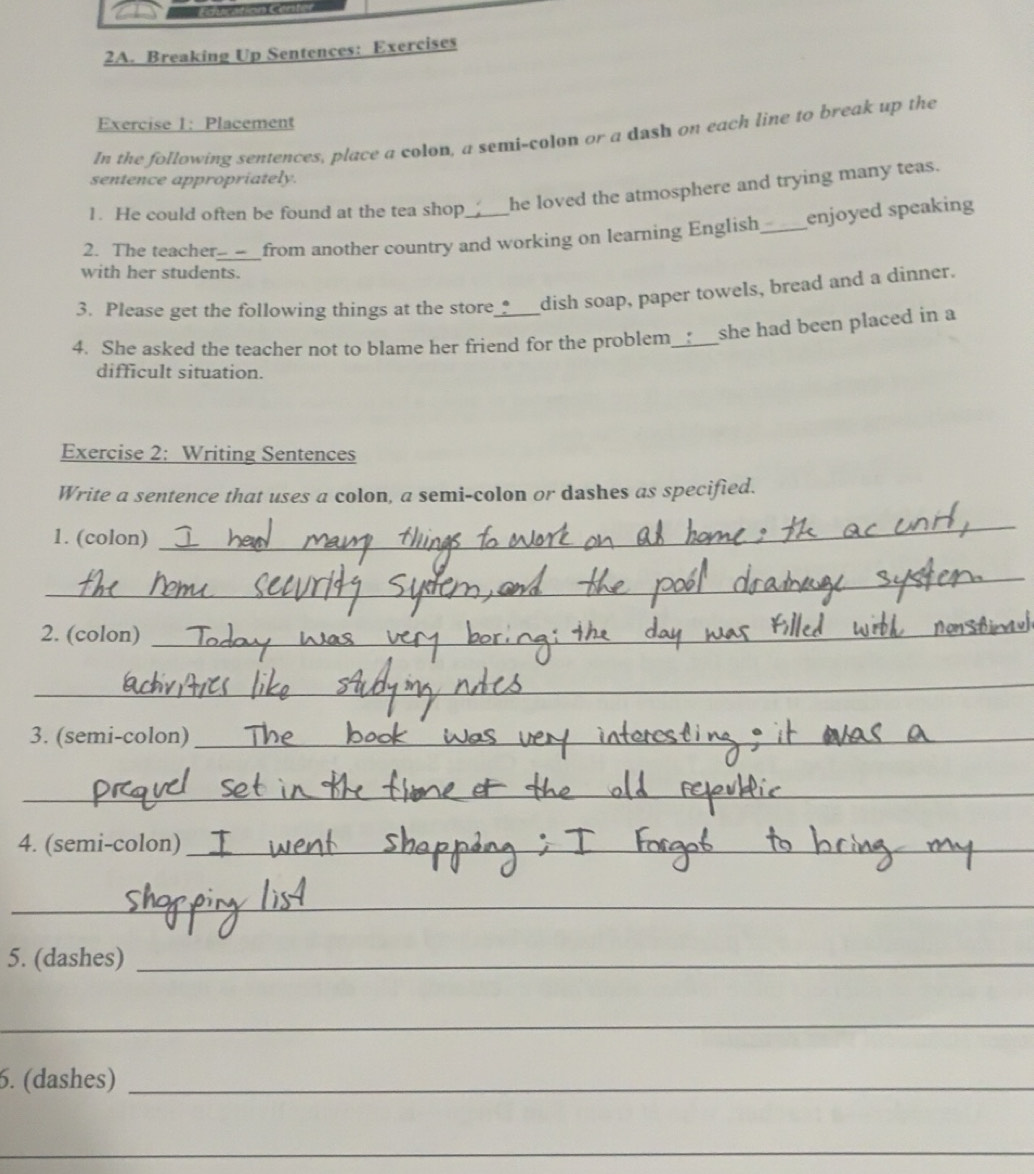 Education Center
2A. Breaking Up Sentences: Exercises
Exercise 1: Placement
In the following sentences, place a colon, a semi-colon or a dash on each line to break up the
sentence appropriately.
1. He could often be found at the tea shop ; he loved the atmosphere and trying many teas.
2. The teacher - from another country and working on learning English - enjoyed speaking
with her students.
3. Please get the following things at the store : dish soap, paper towels, bread and a dinner.
4. She asked the teacher not to blame her friend for the problem ; she had been placed in a
difficult situation.
Exercise 2: Writing Sentences
Write a sentence that uses a colon, a semi-colon or dashes as specified.
1. (colon) I had many things to work on at home: the ac unit,
the home security system, and the pool drainage system
2. (colon) Today was very boring: the day was filled with
activities like studying notes
3. (semi-colon) The book was very interesting; it was a
prequel set in the time of the old republic
4. (semi-colon) I went shopping; I forgot to bring my
shopping list
5. (dashes)
6. (dashes)